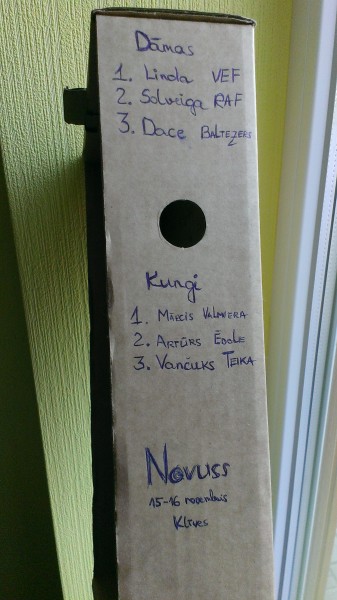 Dāmas
1. Linda VEF
2. Solveiga RAF
3. Dace BALTEZERS
Kungi
1. MĀRCIS VALMIERA
2. ARTŪRS ĒDOLE
3. Vančuks TEIKA
Novuss
15-16 novembris
Klīves